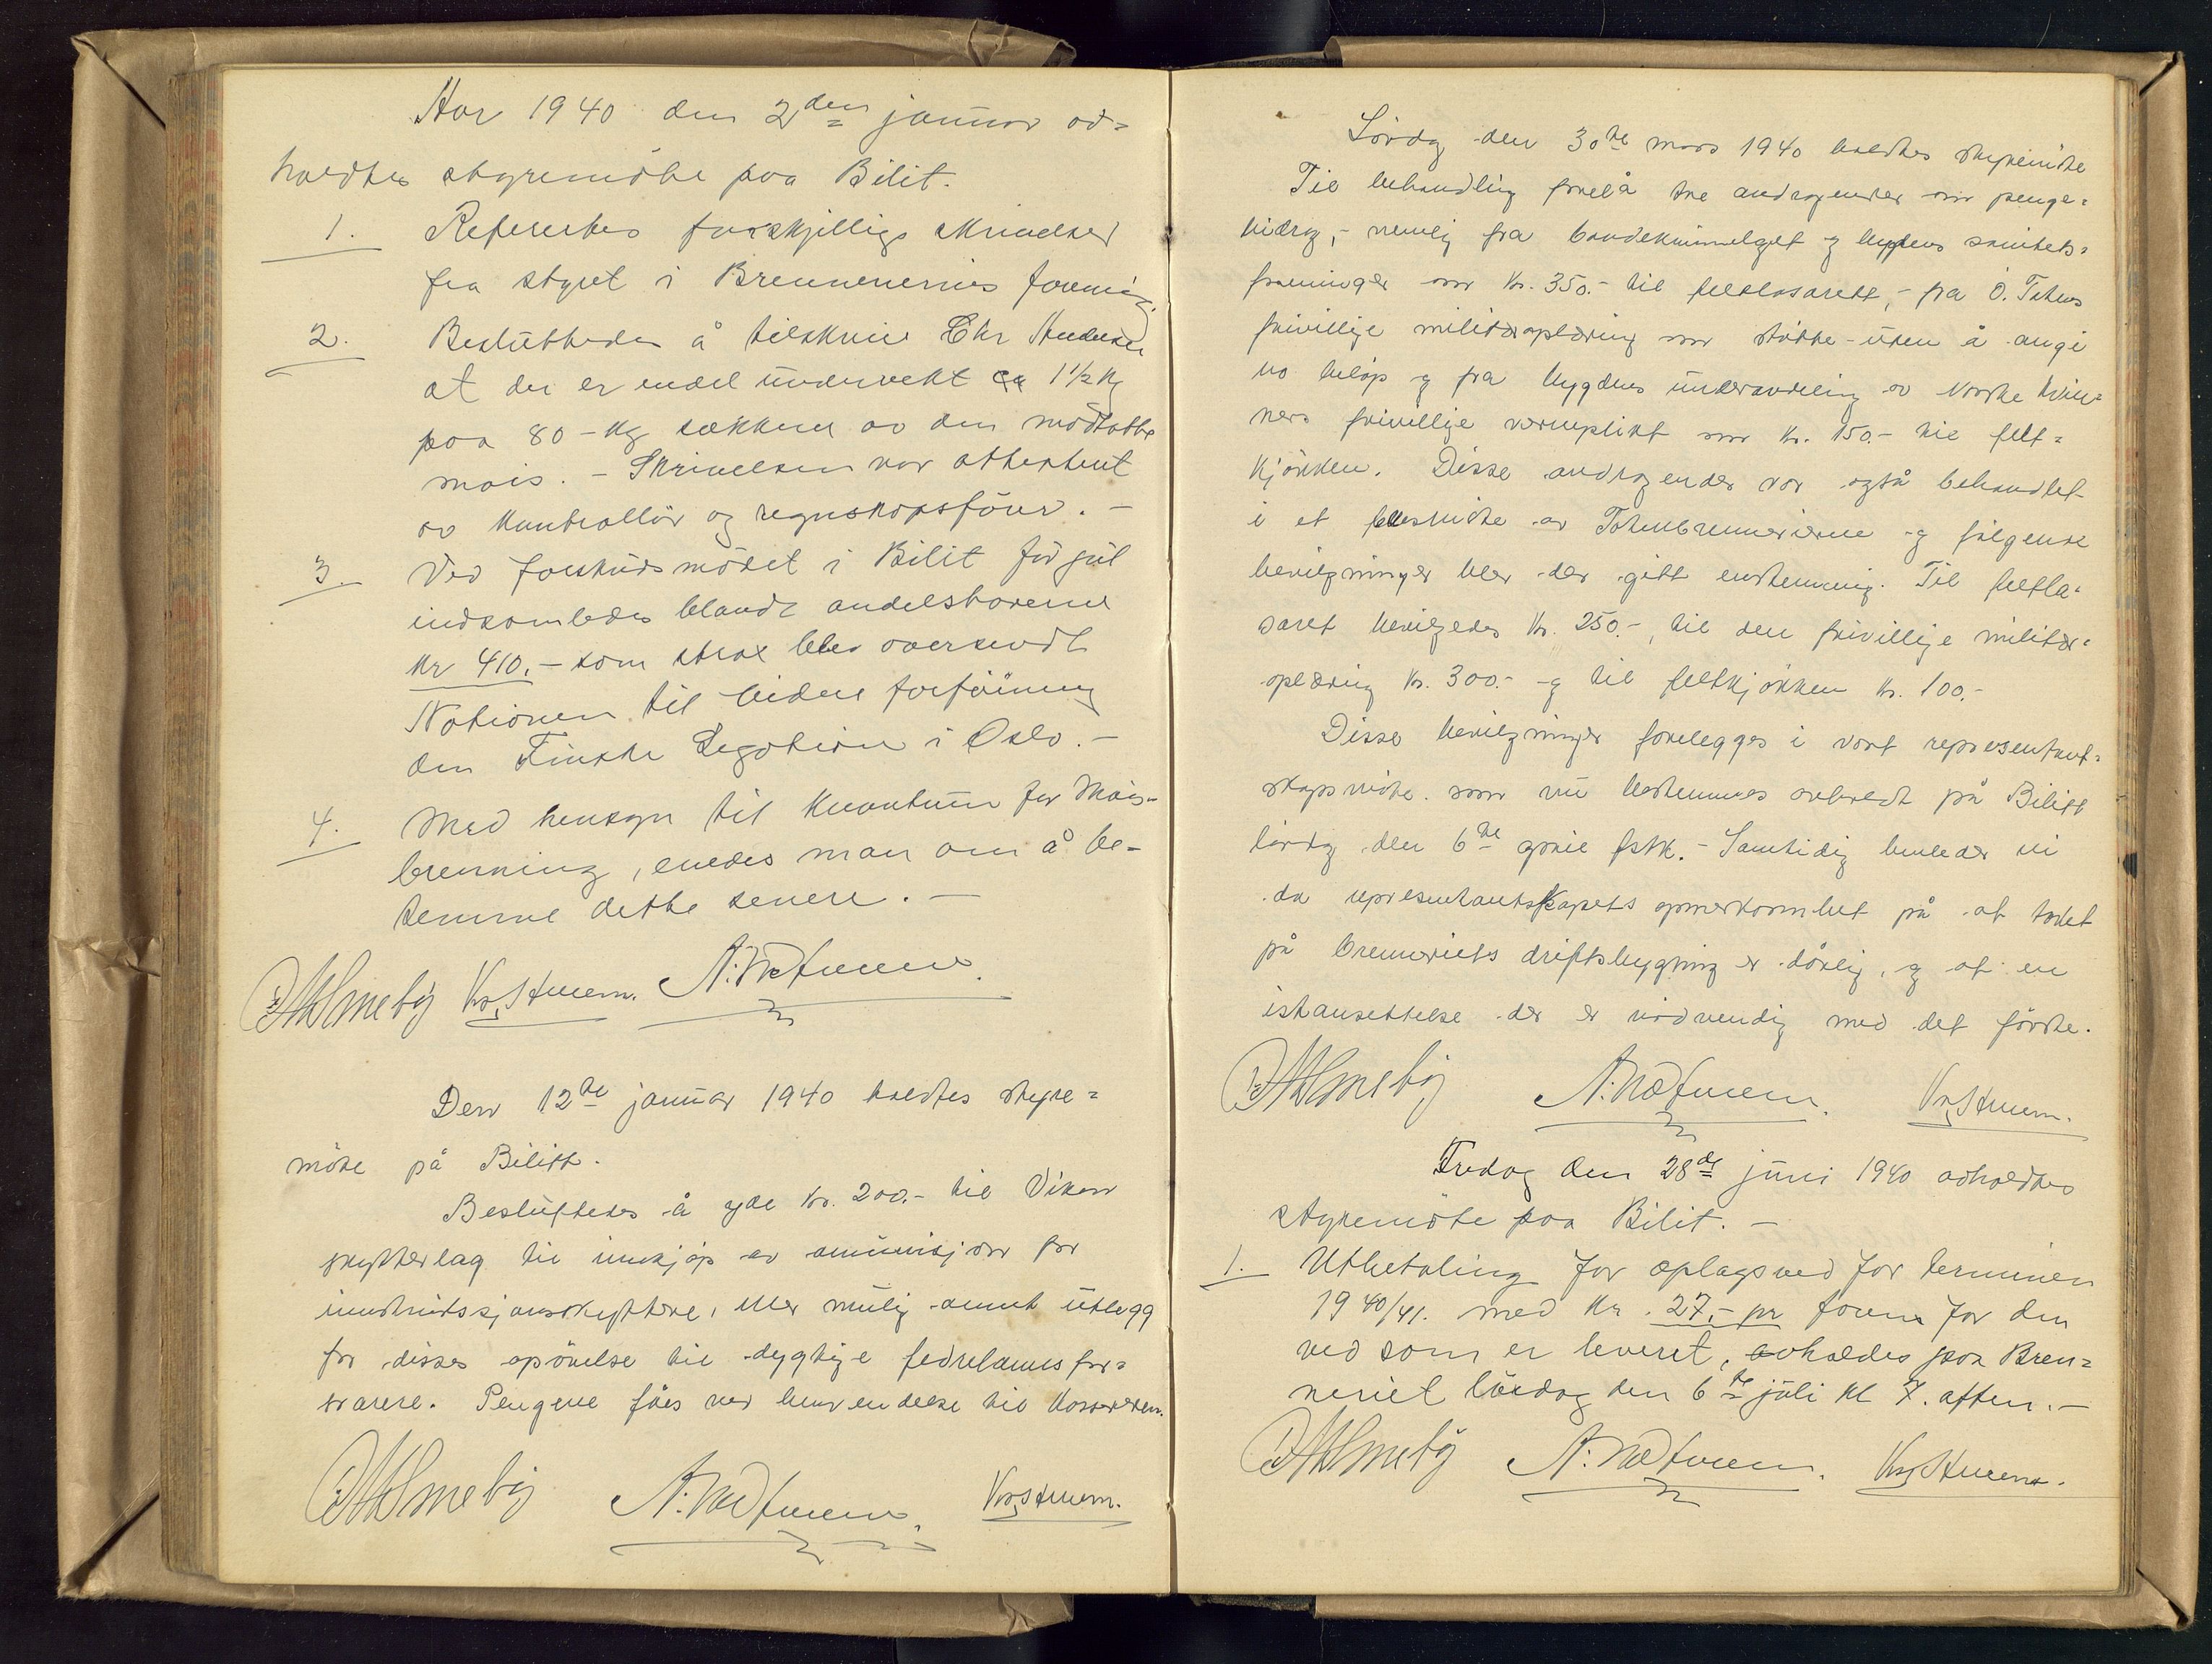 Aar 1940 den 2den januar av=
holdtes styremöte paa Bilit.
1. Refererttes forskjellige skrivelser
fra styret i Brenneriernes forening.
2. Besluttedes å tilskrive Chr Andersen
at der er endel undervekt ca 1½ kg
paa 80-kg sækkene av den modtatte
mais. - Skrivelsen var attestert
av kontrollör og regnskapsförer. -
3. Ved forskudsmötet i Bilit för jul
indsamledes blandt andelshaverne
kr 410.- som strax blev oversendt
Nationen til videre forföining
den Finske Legation i Oslo. -
4. Med hensyn til kvantum for Mais-
brenning, enedes man om å be-
stemme dette senere. -
Den 12te januar 1940 holdtes styre=
möte på Bilitt.
Besluttedes å yde kr. 200.- til Viken
skytterlag til innkjöp av ammunisjon for
instruksjonsskyttere, eller mulig annet utlegg
for disses opövelse til dygtige fedrelandsfor=
svarere. Pengene fåes ved henvendelse til kassereren.
Lördag den 30te mars 1940 holdtes styremöte
Til behandling forelå tre andragender om penge=
bidrag, - nemlig fra bondekvinnelaget og bygdens sanitets=
foreninger om kr. 350.- til feltlasarett, - fra Ö. Totens
frivillige militæroplæring om stötte - uten å angi
no belöp og fra bygdens underavdeling av Norske kvin=
ners frivillige verneplikt om kr. 150.- til felt=
kjökken. Disse andragender var også behandlet
i et fellesmöte av Totenbrenneriene og fölgende
bevilgninger blev der gitt enstemmig. Til feltla=
saret bevilgedes kr. 250.-, til den frivillige militær=
oplæring kr. 300.- og til feltkjökken kr. 100.-
Disse bevilgninger forelegges i vort representant=
skapsmöte som nu bestemmes avholdt på Bilitt
lördag den 6te april fstk. - Samtidig henleder vi
da representantskapets opmerksomhet på at taket
på brenneriets driftsbygning er dårlig, og at en
istansettelse der er nödvendig med det förste.
Fredag den 28de juni 1940 avholdtes
styremöte paa Bilit. -
1. Utbetaling for oplagsved for terminen
1940/41. med kr. 27.- pr favn for den
ved som er leveret, avholdes paa Bren=
neriet lördag den 6te juli kl 7. aften. -